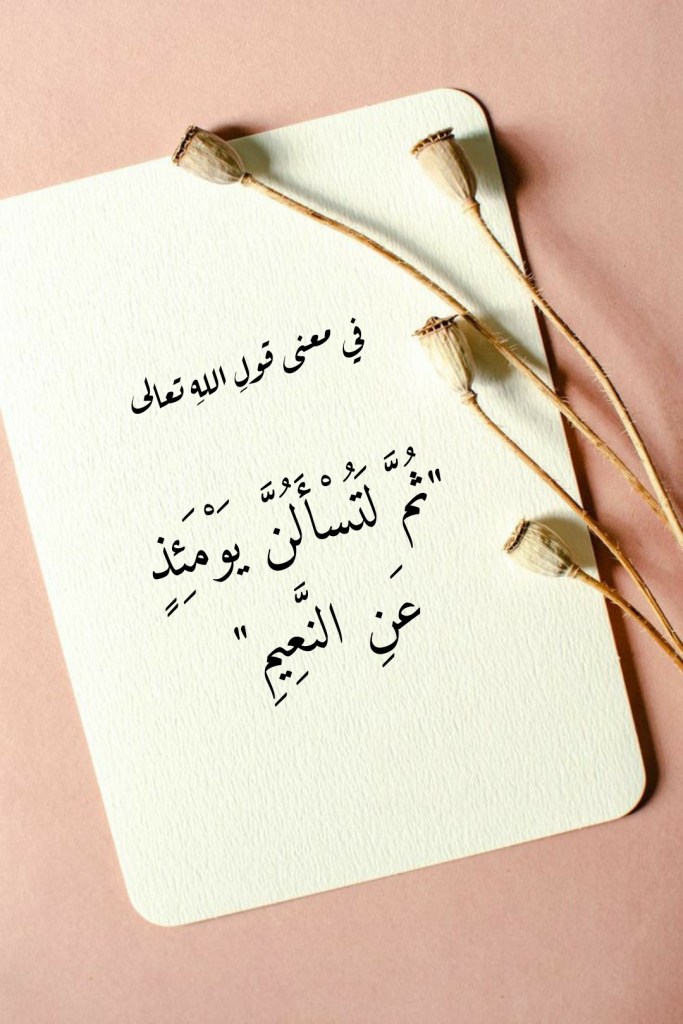 في معنى قولِ اللهِ تعالى
"ثُمَّ لَتُسْأَلُنَّ يَوْمَئِذٍ
عَنِ النَّعِيمِ"